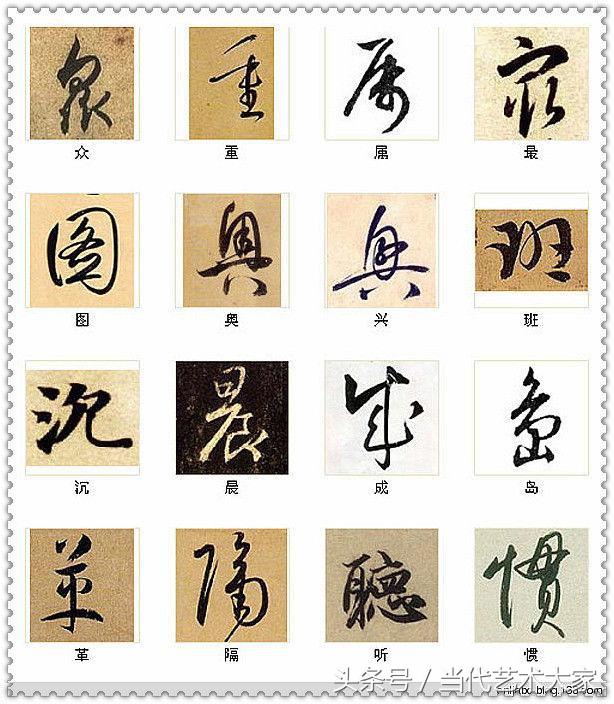 众 重 属 最
图 奥 兴 班
沉 晨 成 岛
革 隔 听 惯
头条号 / 当代艺术大家